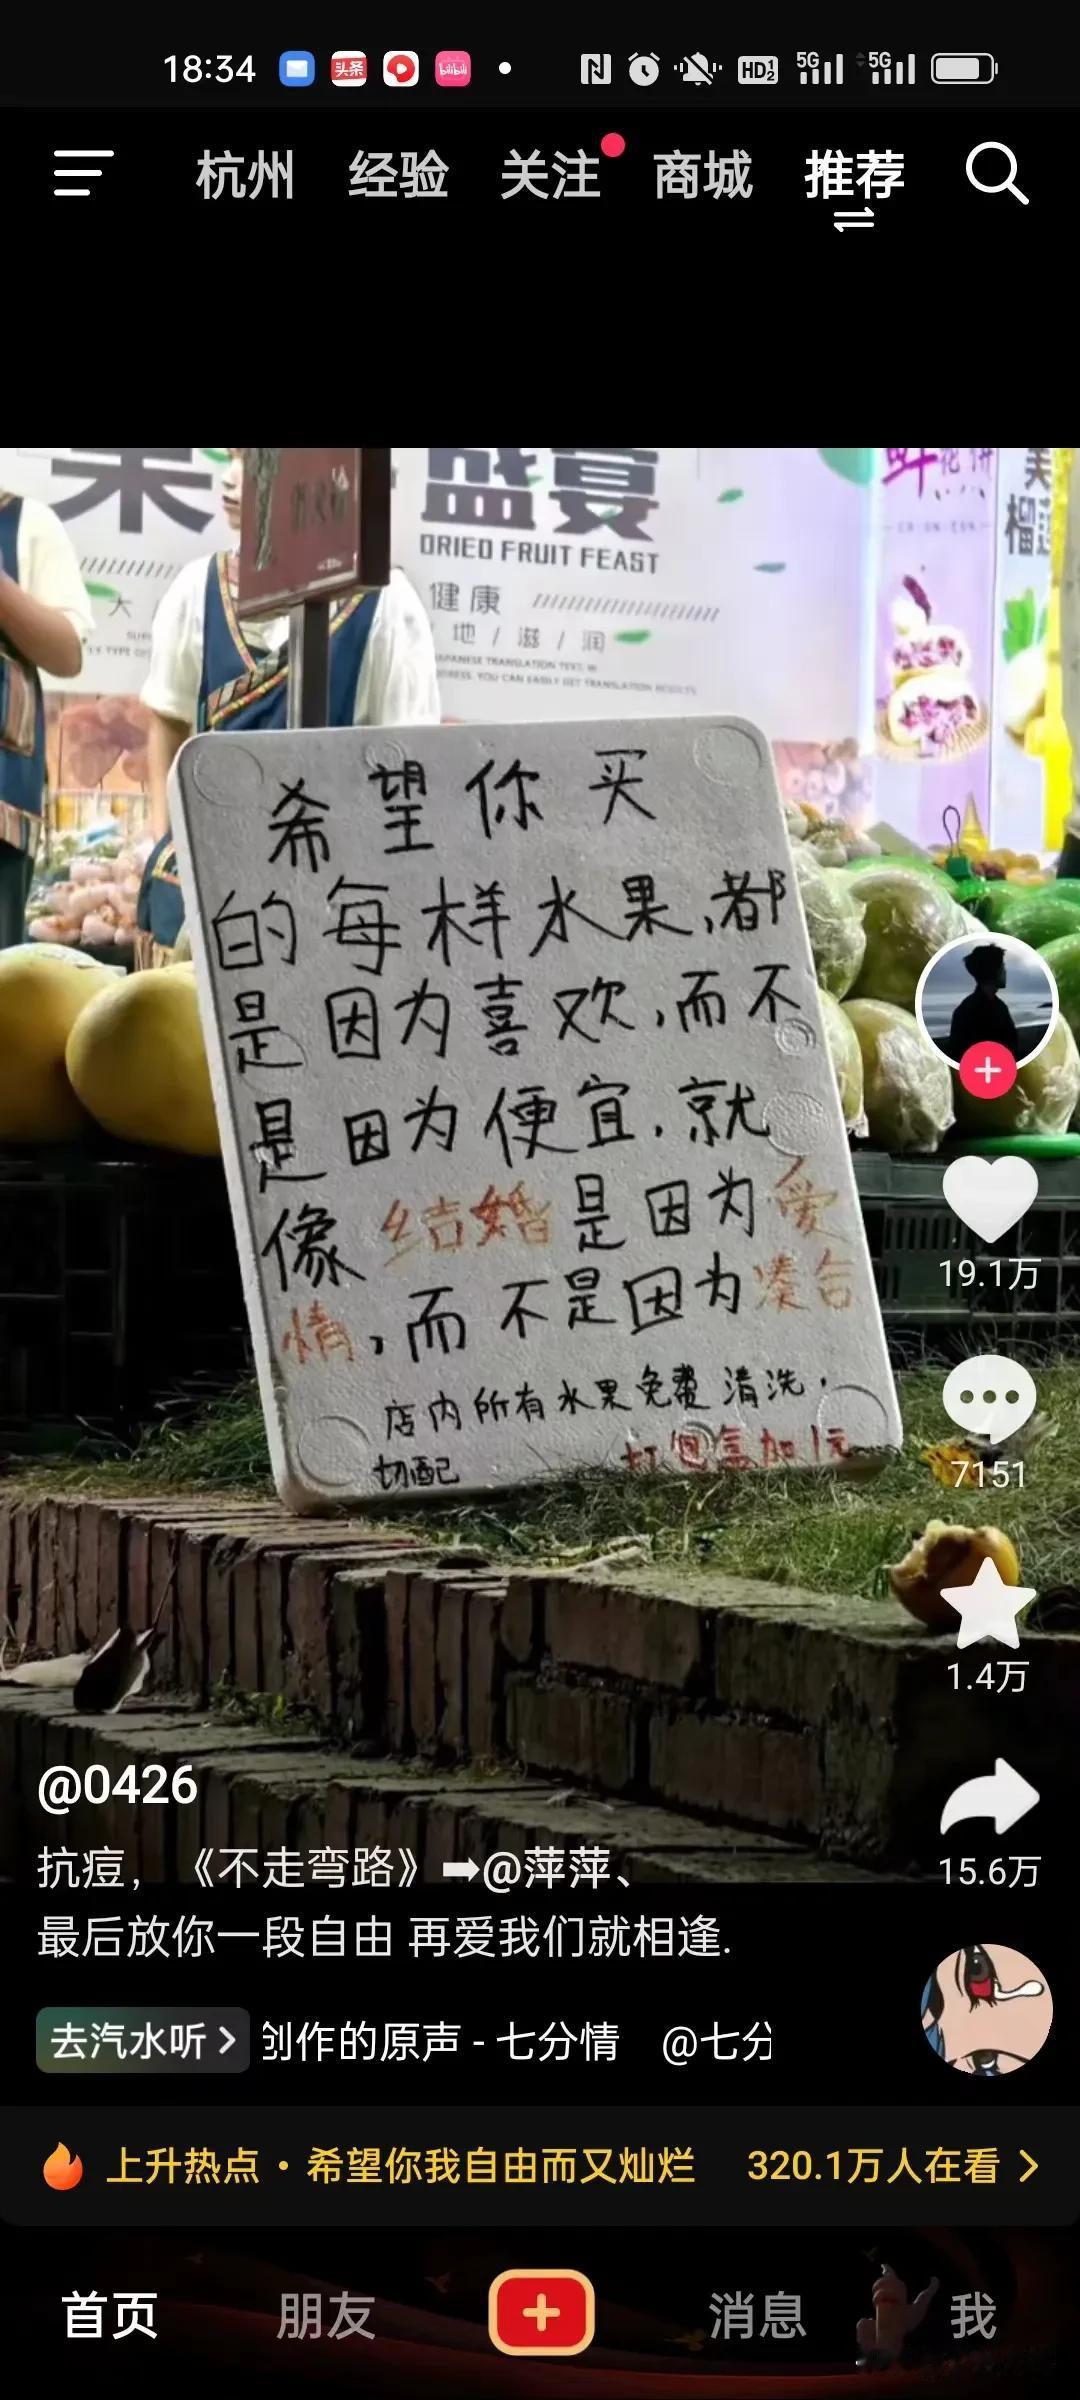 18:34
头条
bilibili
HD12
5G
5G
杭州 经验 关注 商城 推荐
果 盛宴
DRIED FRUIT FEAST
健康
大 地 / 滋 / 润
鲜花饼
美
榴莲
希望你买
的每样水果,都
是因为喜欢,而不
是因为便宜.就
像结婚是因为爱
情,而不是因为凑合
店内所有水果免费清洗.
切配 打包盒加1元
19.1万
7151
1.4万
15.6万
@0426
抗痘，《不走弯路》➡@萍萍、
最后放你一段自由 再爱我们就相逢.
去汽水听 > 创作的原声 - 七分情 @七分
上升热点 · 希望你我自由而又灿烂 320.1万人在看 >
首页 朋友 消息 我